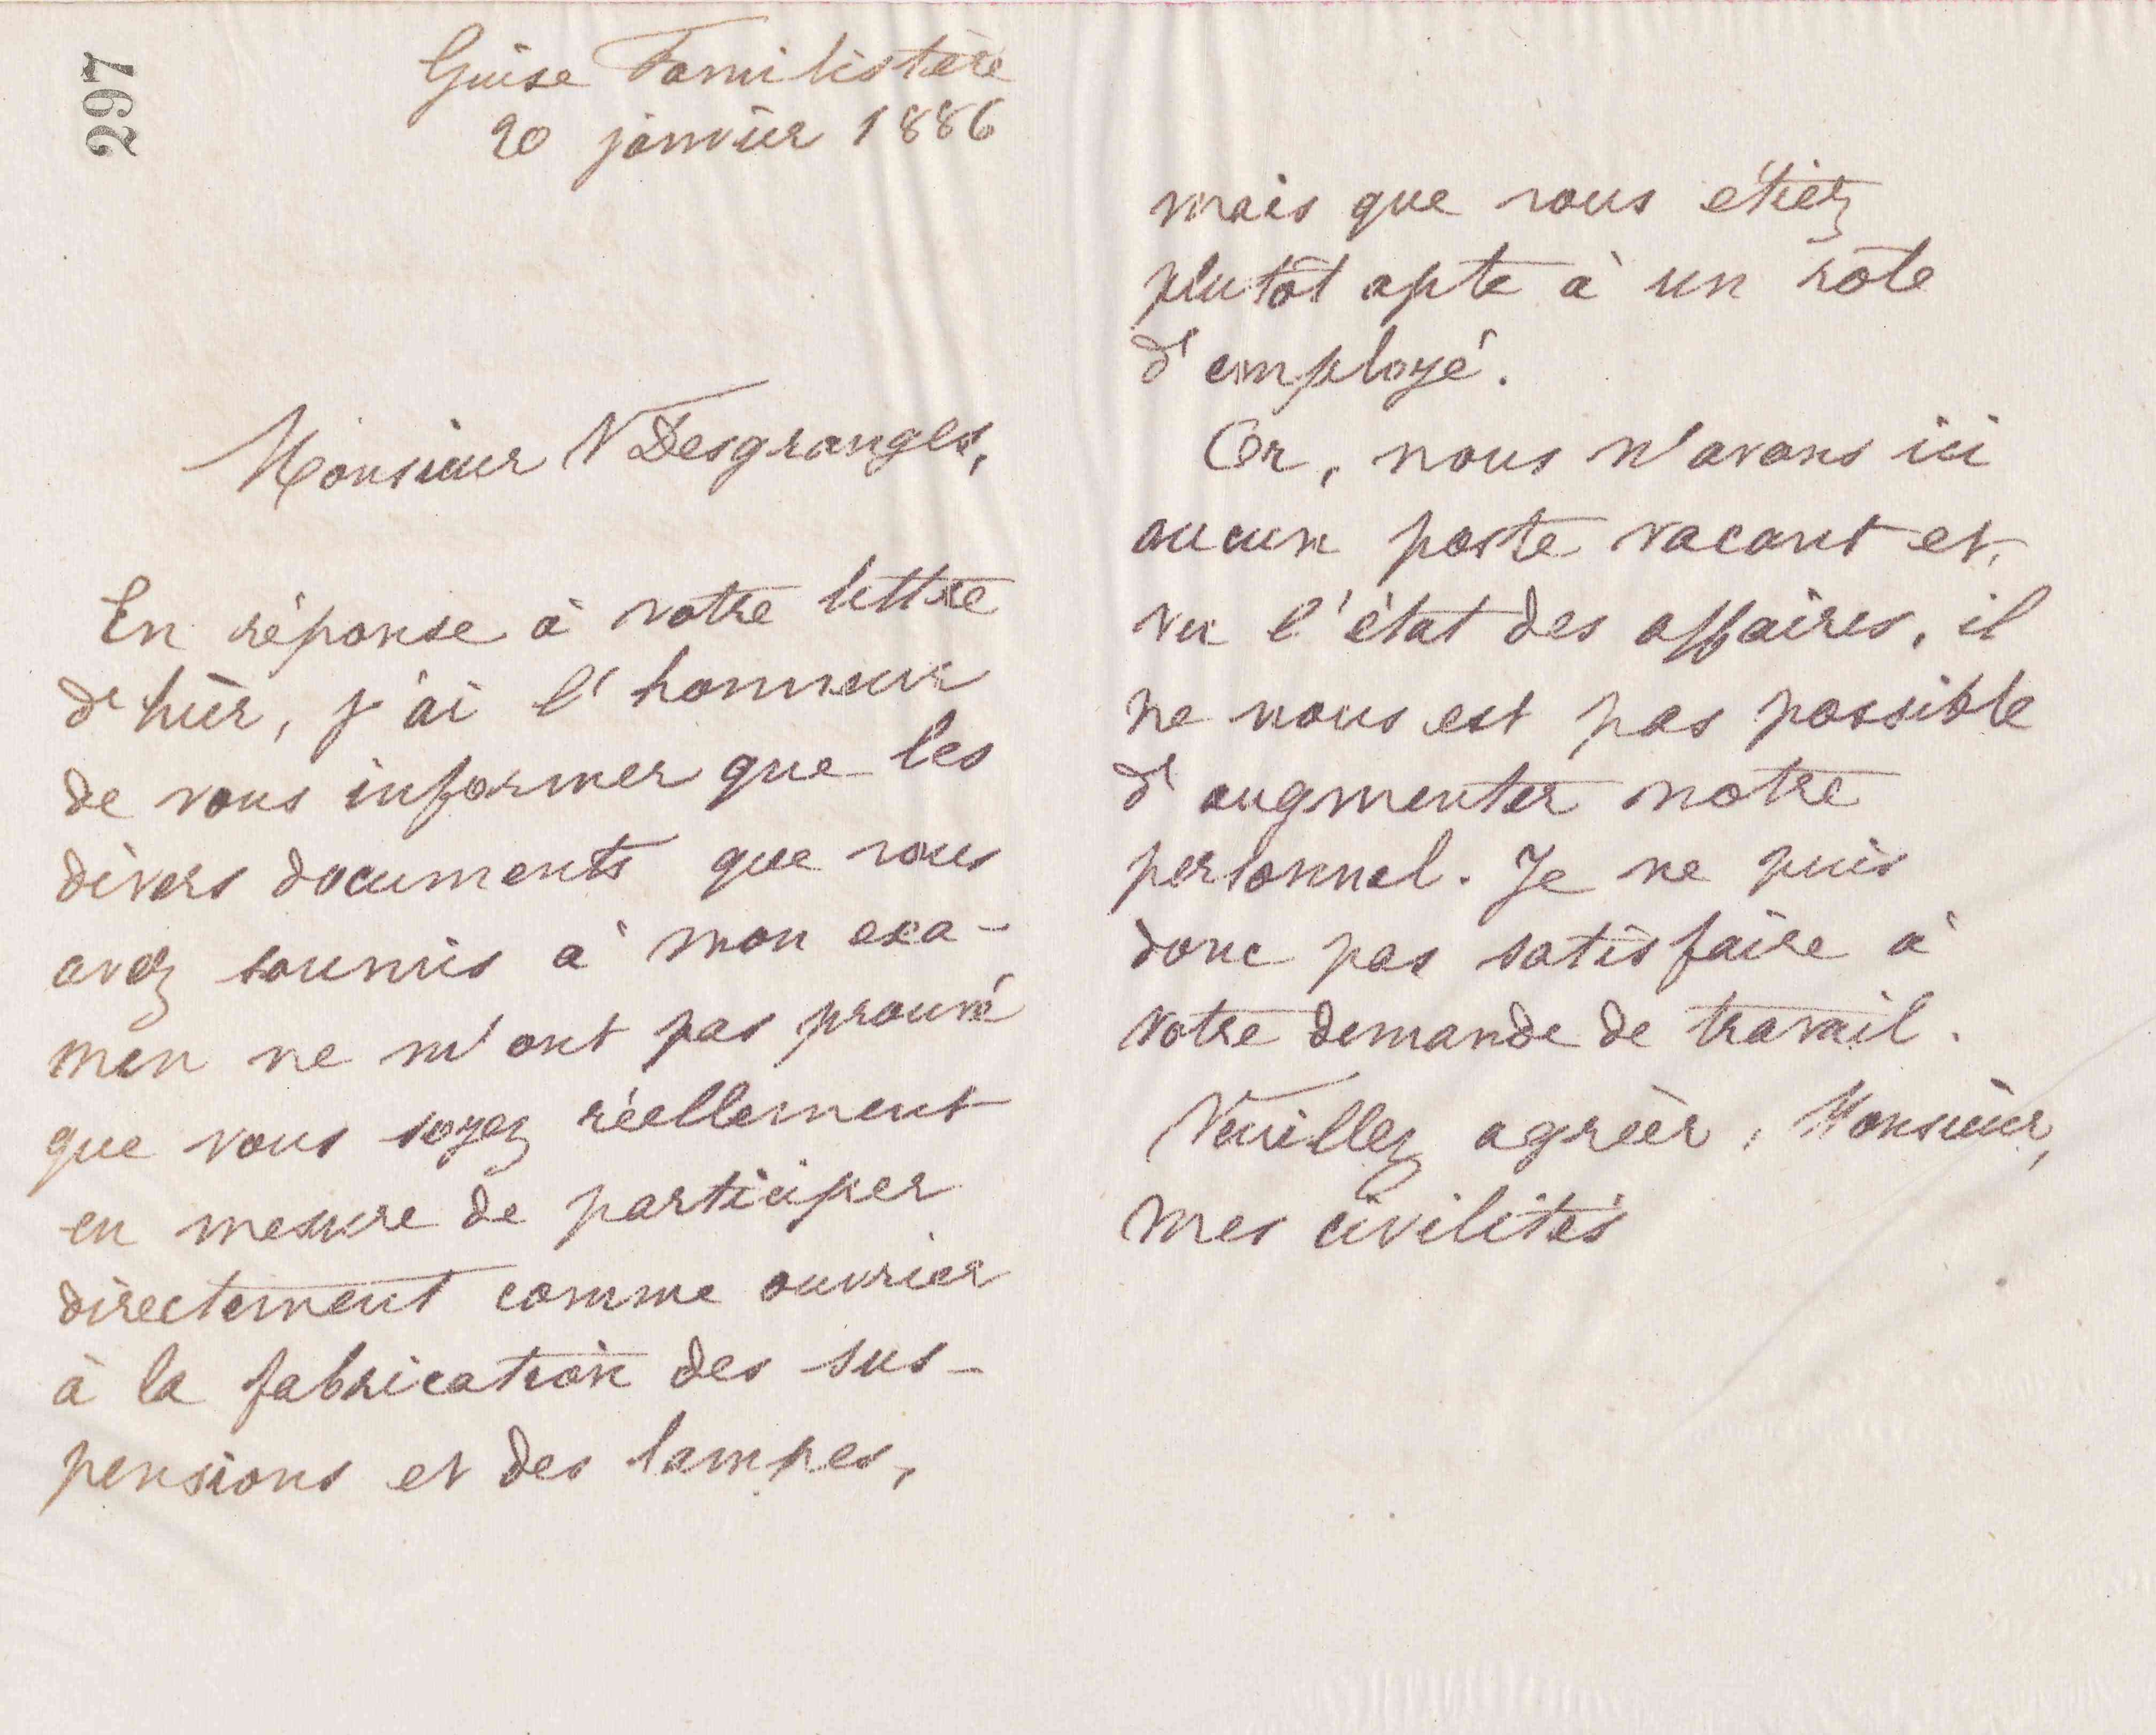 297
Guise Familistère
20 janvier 1886
Monsieur V Desgranges,
En réponse à votre lettre
d'hier, j'ai l'honneur
de vous informer que les
divers documents que vous
avez soumis à mon exa-
men ne m'ont pas prouvé
que vous soyez réellement
en mesure de participer
directement comme ouvrier
à la fabrication des sus-
pensions et des lampes,
mais que vous étiez
plutôt apte à un rôle
d'employé.
Or, nous n'avons ici
aucun poste vacant et,
vu l'état des affaires, il
ne nous est pas possible
d'augmenter notre
personnel. Je ne puis
donc pas satisfaire à
votre demande de travail.
Veuillez agréer, Monsieur,
mes civilités